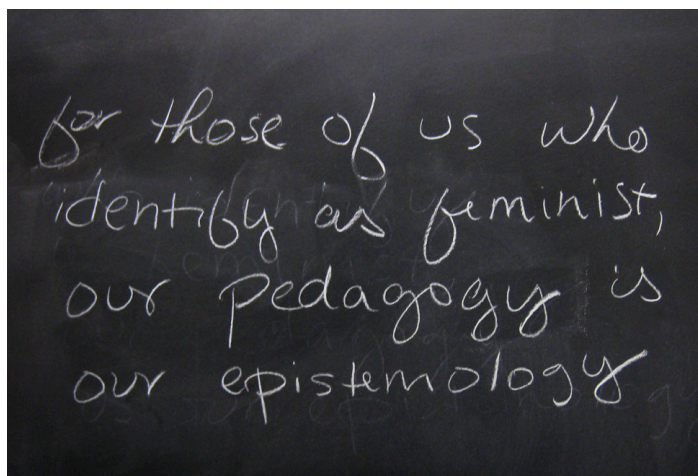 for those of us who
identify as feminist,
our pedagogy is
our epistemology